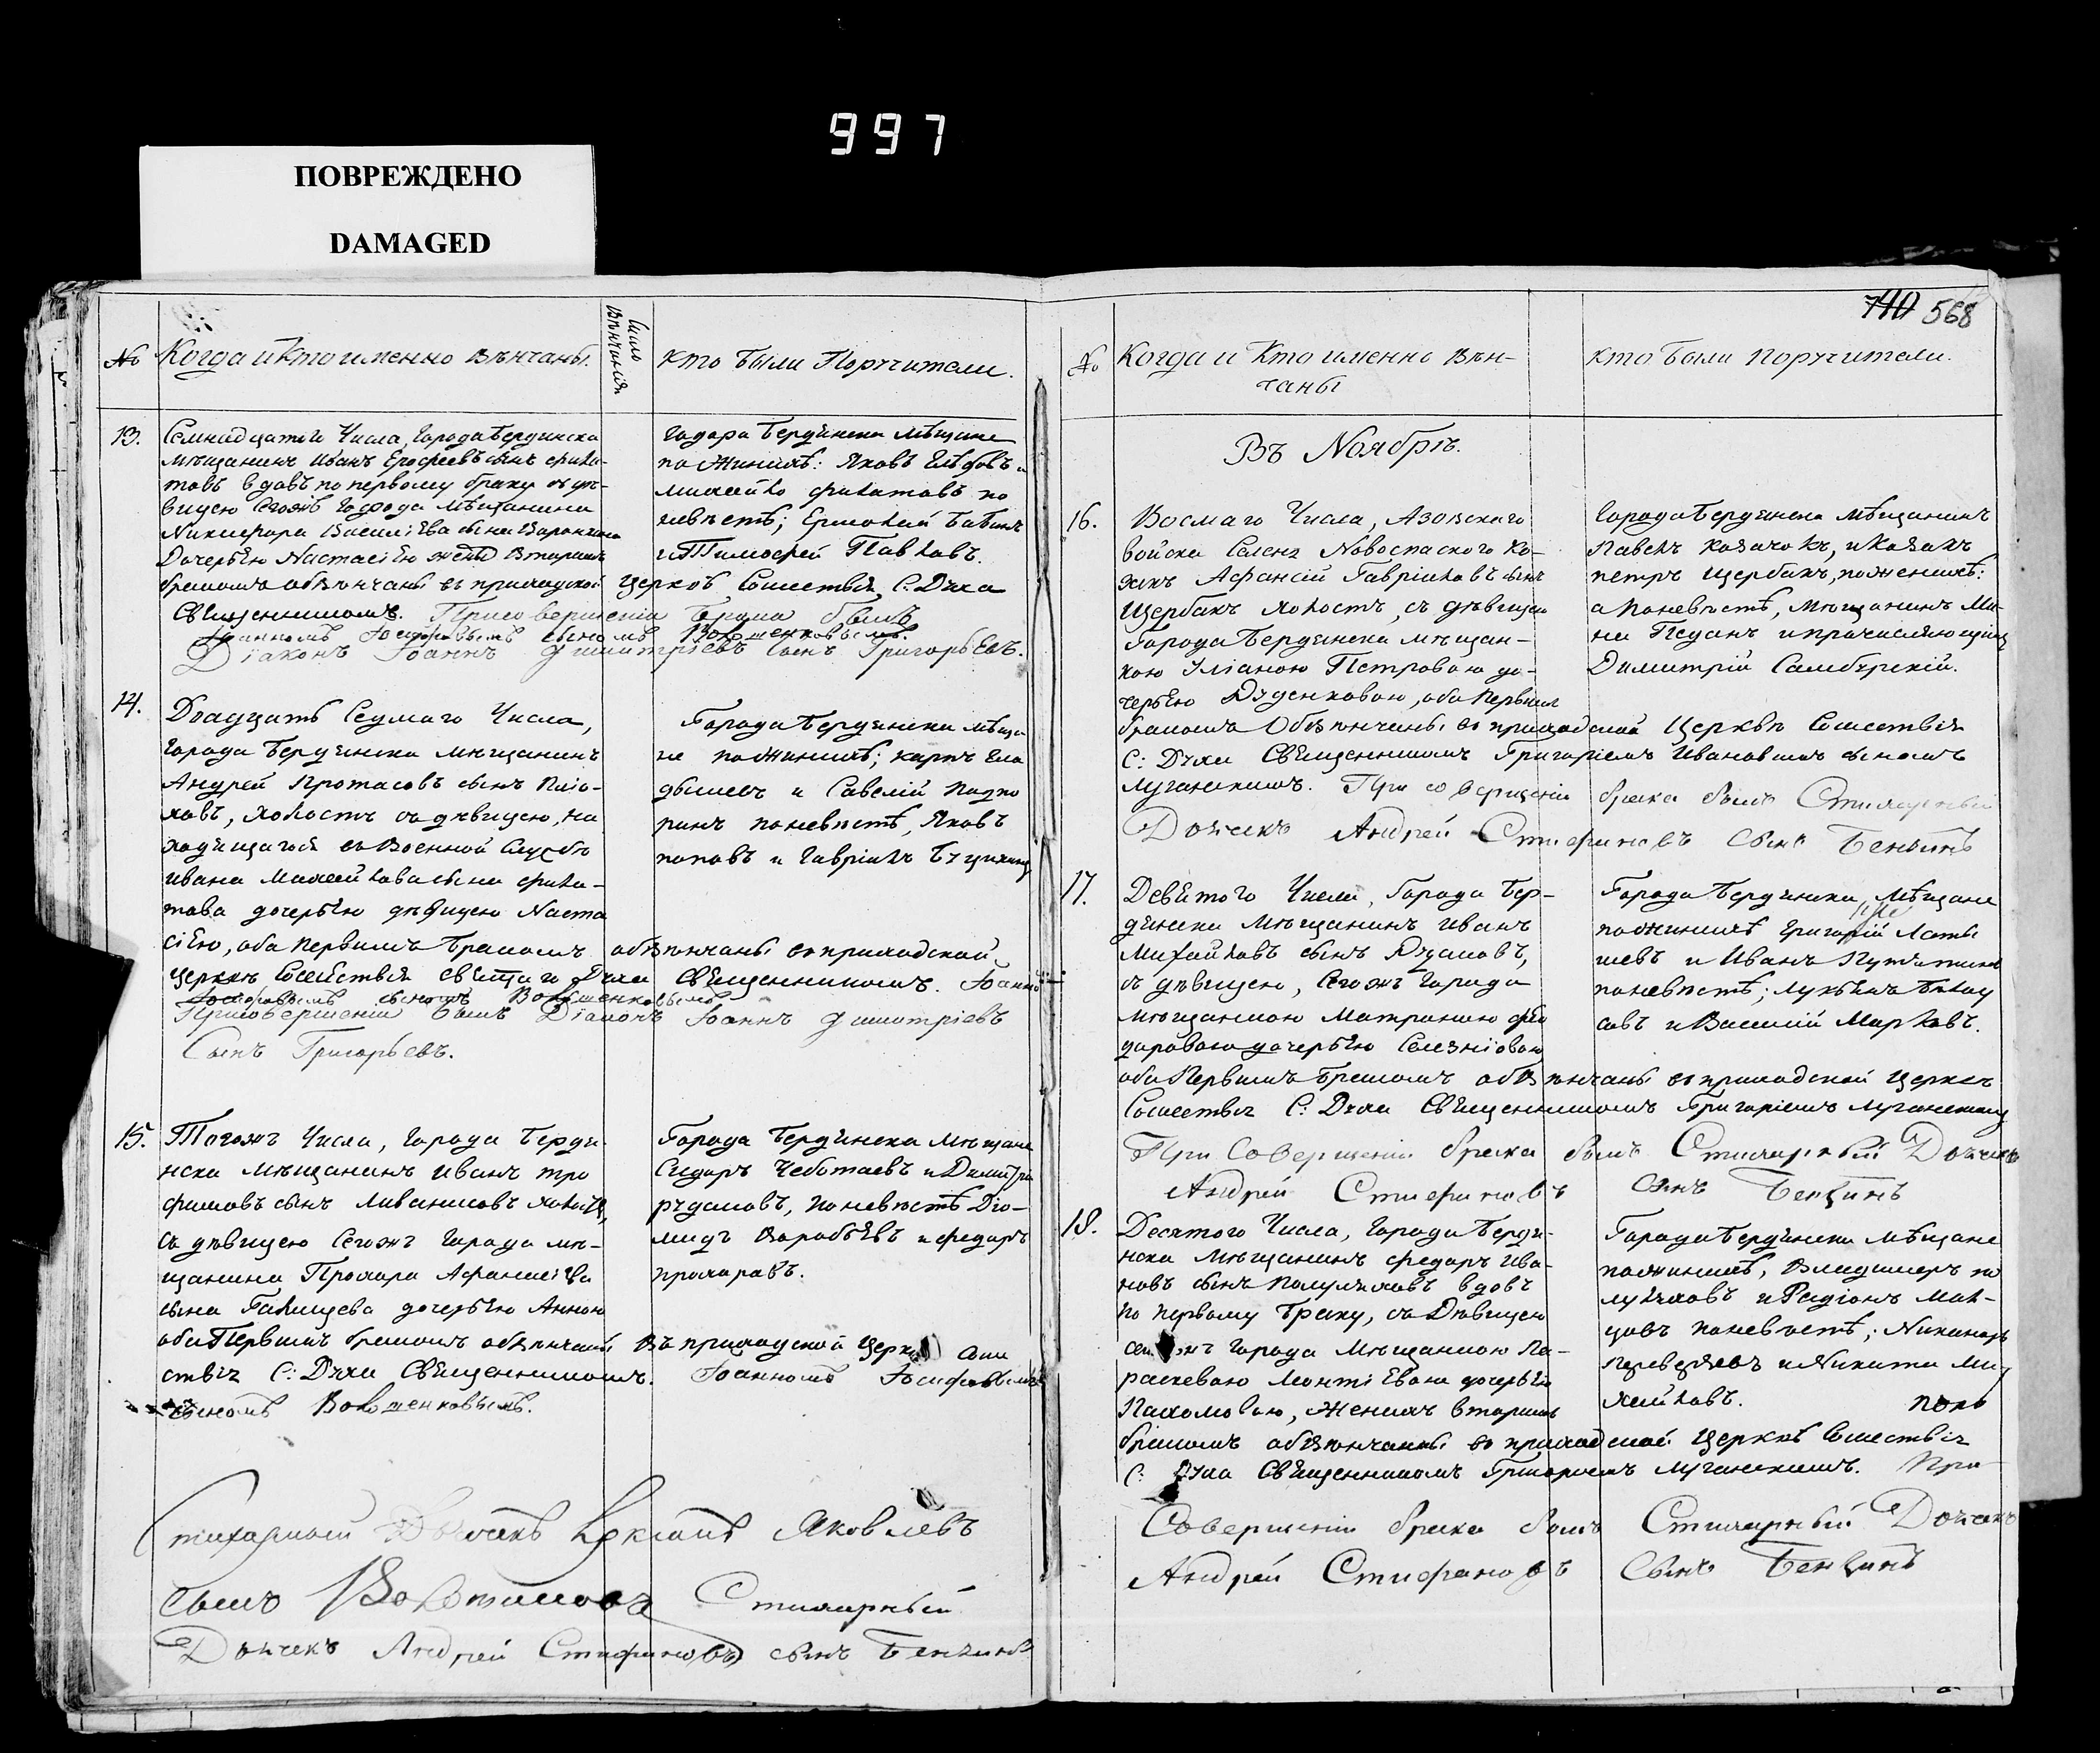 997
ПОВРЕЖДЕНО
DAMAGED
740 568
№ Когда и Кто именно Вѣнчаны.
Число Вѣнчанія
кто были Порꙋчители.
13. Семнадцатого Числа, города Бердянска
мѣщанинъ Иванъ Ерофеевъ сынъ фила-
товъ вдовъ по первому браку съ дѣ-
вицею Сегожъ Города Мѣщанина
Никифора Василіева сына
Дочерью Настасіею женихъ Вторымъ
бракомъ обвѣнчаны въ приходской церквѣ Сошествія С. Духа
Священникомъ. При совершеніи брака былъ
Іоанномъ Іосифовымъ сыномъ Волошенковымъ.
Діаконъ Іоаннъ Димитріевъ Сынъ Григорьевъ.
Бердянска Мѣщане
по Жинихѣ: Яковъ Глѣбовъ и
Михайло филатовъ по
невѣстѣ; Ермолай Бабинъ
и Тимофей Павловъ.
14. Двадцать Седмаго Числа,
города Бердянска мѣщанинъ
Андрей Протасовъ сынъ
холостъ съ дѣвицею, на
ходящагося въ Военной Слꙋжбѣ
ивана Михайлова сына фила-
това дочерью дѣвицею Наста
сіею, оба первымъ бракомъ обвѣнчаны въ приходской
церквѣ Сошествія святаго Духа Священникомъ. Іоанно
Іосифовымъ сыномъ Волошенковымъ
При совершеніи былъ Діаконъ Іоаннъ Димитріевъ
Сынъ Григорьевъ.
Города Бердянска мѣща
не по жинихѣ; карпъ
и Савелій
по невѣстѣ, Яковъ
поповъ и Гавріилъ
15. Тогожъ Числа, города Бердя
нска мѣщанинъ иванъ тро
фимовъ сынъ Ливанисовъ
съ дѣвицею Сегожъ Города мѣ-
щанина Прохора Афанасіева
сына дочерью Анною
оба Первымъ бракомъ обвѣнчаны Въ приходской Церкв Соше
ствія С: Духа Священникомъ. Іоанномъ Іосифовымъ
сыномъ Волошенковымъ.
Города Бердянска Мѣщане
Сидоръ Чеботаевъ и Димитри
рꙋдаковъ, по невѣстѣ Діо-
мидъ Воробьевъ и федоръ
прохоровъ.
Стихарный Яковлевъ
сынъ Стихарный
Дьячекъ Андрей Стифановъ сынъ Бенцинъ
№ Когда и Кто именно Вѣн-
чаны
кто были порꙋчители.
Въ Ноябрѣ.
16. Восмаго Числа, Азовскаго
войска Новоспаского Ко-
закъ Афанасій Гавріиловъ сынъ
Щербакъ холостъ, съ дѣвицею
Города Бердянска мѣщан-
кою Ѵліаною Петровою до-
черью Дꙋденковою, оба первымъ
бракомъ Обвѣнчаны въ приходской Церквѣ Сошествія
С: Дꙋха Священникомъ Григоріемъ Ивановымъ сыномъ
Луганскимъ. При совершеніи брака былъ Стихарный
Дьячекъ Андрей Стифановъ сынъ Бенцинъ
Города Бердянска Мѣщанинъ
Павелъ Козачокъ, и Козакъ
петръ Щербакъ, по женихѣ:
а по невѣстѣ, мѣщанинъ Ми-
на и
Димитрій Самбꙋрскій.
17. Девятого Числа, Города Бер-
дянска Мѣщанинъ Иванъ
Михайловъ сынъ Рꙋдаковъ,
съ дѣвицею, Сегожъ Города
мѣщанкою Матроною фео
доровою дочерью Селезніовою
оба Первымъ бракомъ обвѣнчаны въ приходской церквѣ
Сошествія С: Дꙋха Священникомъ Григоріемъ Луганскимъ
При Совершеніи брака былъ Стихарный Дьячекъ
Андрей Стифановъ Сынъ Бенцинъ
Города Бердянска, Мѣщане
по жинихѣ Григорій Латы
шевъ и Иванъ
по невѣстѣ; Лукьянъ
и Василій Марковъ.
18. Десятого Числа, Города Бердя-
нска Мѣщанинъ федоръ Ива-
новъ сынъ вдовъ
по первому браку, съ Дѣвицею
Города Мѣщанкою Па-
раскевою Леонтіевою дочерью
Пахомовою, Женихъ вторымъ
бракомъ обвѣнчаны въ приходской Церквѣ Сошествія
С: Дꙋха Священникомъ Григоріемъ Луганскимъ. При
Совершеніи брака былъ Стихарный Дьячекъ
Андрей Стифановъ Сынъ Бенцинъ
Города Бердянска Мѣщане
по жинихѣ, Владимеръ по
и Родіонъ
по невѣстѣ; Никаноръ
и Никита Ми
хайловъ.